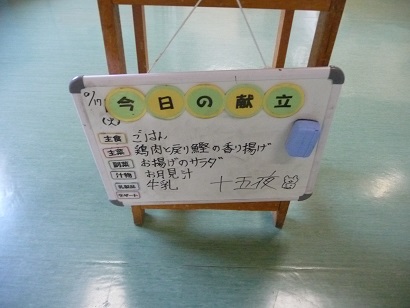 今日の献立
9/17
(火)
主食 ごはん
主菜 鶏肉と戻り鰹の香り揚げ
副菜 お揚げのサラダ
汁物 お月見汁
乳製品 牛乳
デザート
十五夜